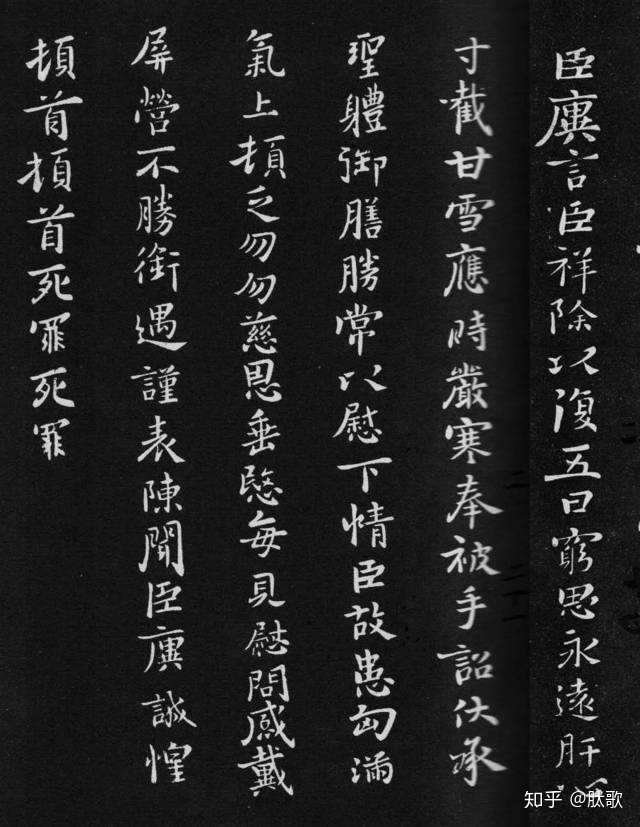 臣廙言臣祥除以復五日窮思永遠肝心
寸截甘雪應時嚴寒奉被手詔伏承
聖體御膳勝常以慰下情臣故患匈滿
氣上頓乏勿勿慈恩垂愍每見慰問感戴
屏營不勝銜遇謹表陳聞臣廙誠惶
頓首頓首死罪死罪
知乎 @肽歌